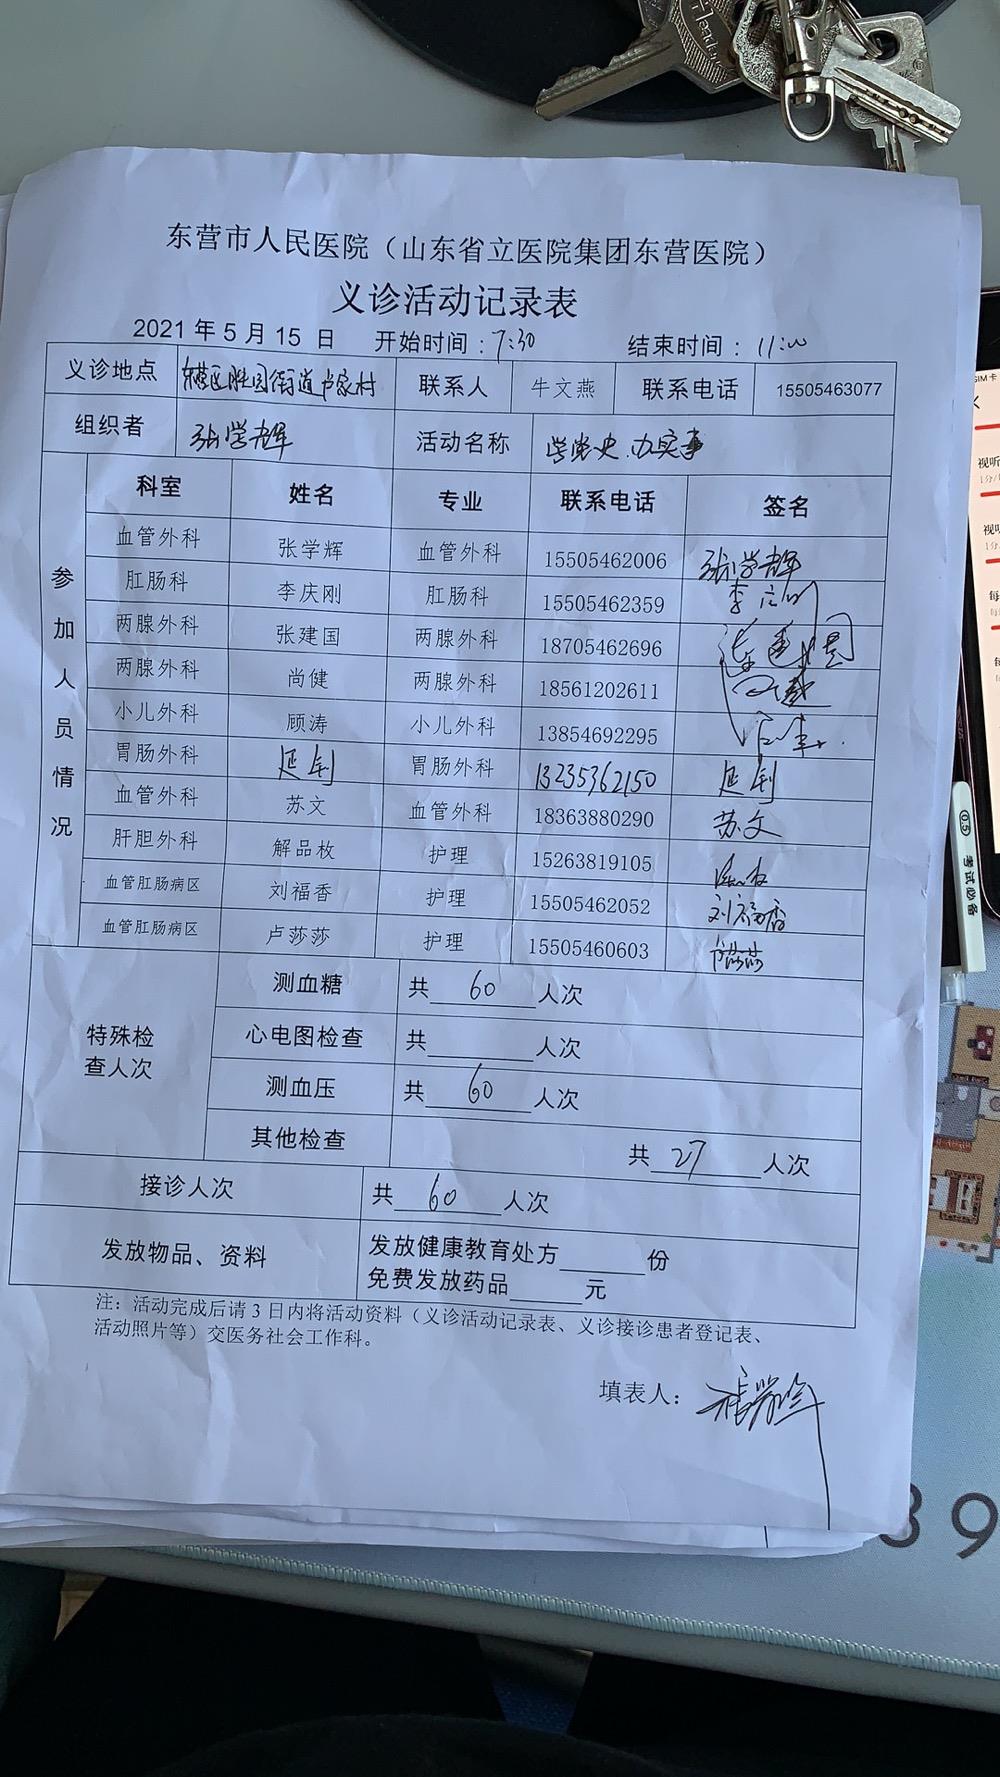 东营市人民医院（山东省立医院集团东营医院）
义诊活动记录表
2021 年 5 月 15 日 开始时间：7:30 结束时间：11:00
义诊地点 东营区胜园街道卢家村 联系人 牛文燕 联系电话 15505463077
组织者 张学辉 活动名称 学党史.办实事
参加人员情况
科室 姓名 专业 联系电话 签名
血管外科 张学辉 血管外科 15505462006 张学辉
肛肠科 李庆刚 肛肠科 15505462359 李庆刚
两腺外科 张建国 两腺外科 18705462696 张建国
两腺外科 尚健 两腺外科 18561202611
小儿外科 顾涛 小儿外科 13854692295
胃肠外科 延刚 胃肠外科 13235362150 延刚
血管外科 苏文 血管外科 18363880290 苏文
肝胆外科 解品枚 护理 15263819105
血管肛肠病区 刘福香 护理 15505462052 刘福香
血管肛肠病区 卢莎莎 护理 15505460603 卢莎莎
特殊检查人次
测血糖 共 60 人次
心电图检查 共 人次
测血压 共 60 人次
其他检查 共 27 人次
接诊人次 共 60 人次
发放物品、资料
发放健康教育处方 份
免费发放药品 元
注：活动完成后请 3 日内将活动资料（义诊活动记录表、义诊接诊患者登记表、
活动照片等）交医务社会工作科。
填表人：
0.5 考试必备
视听
39